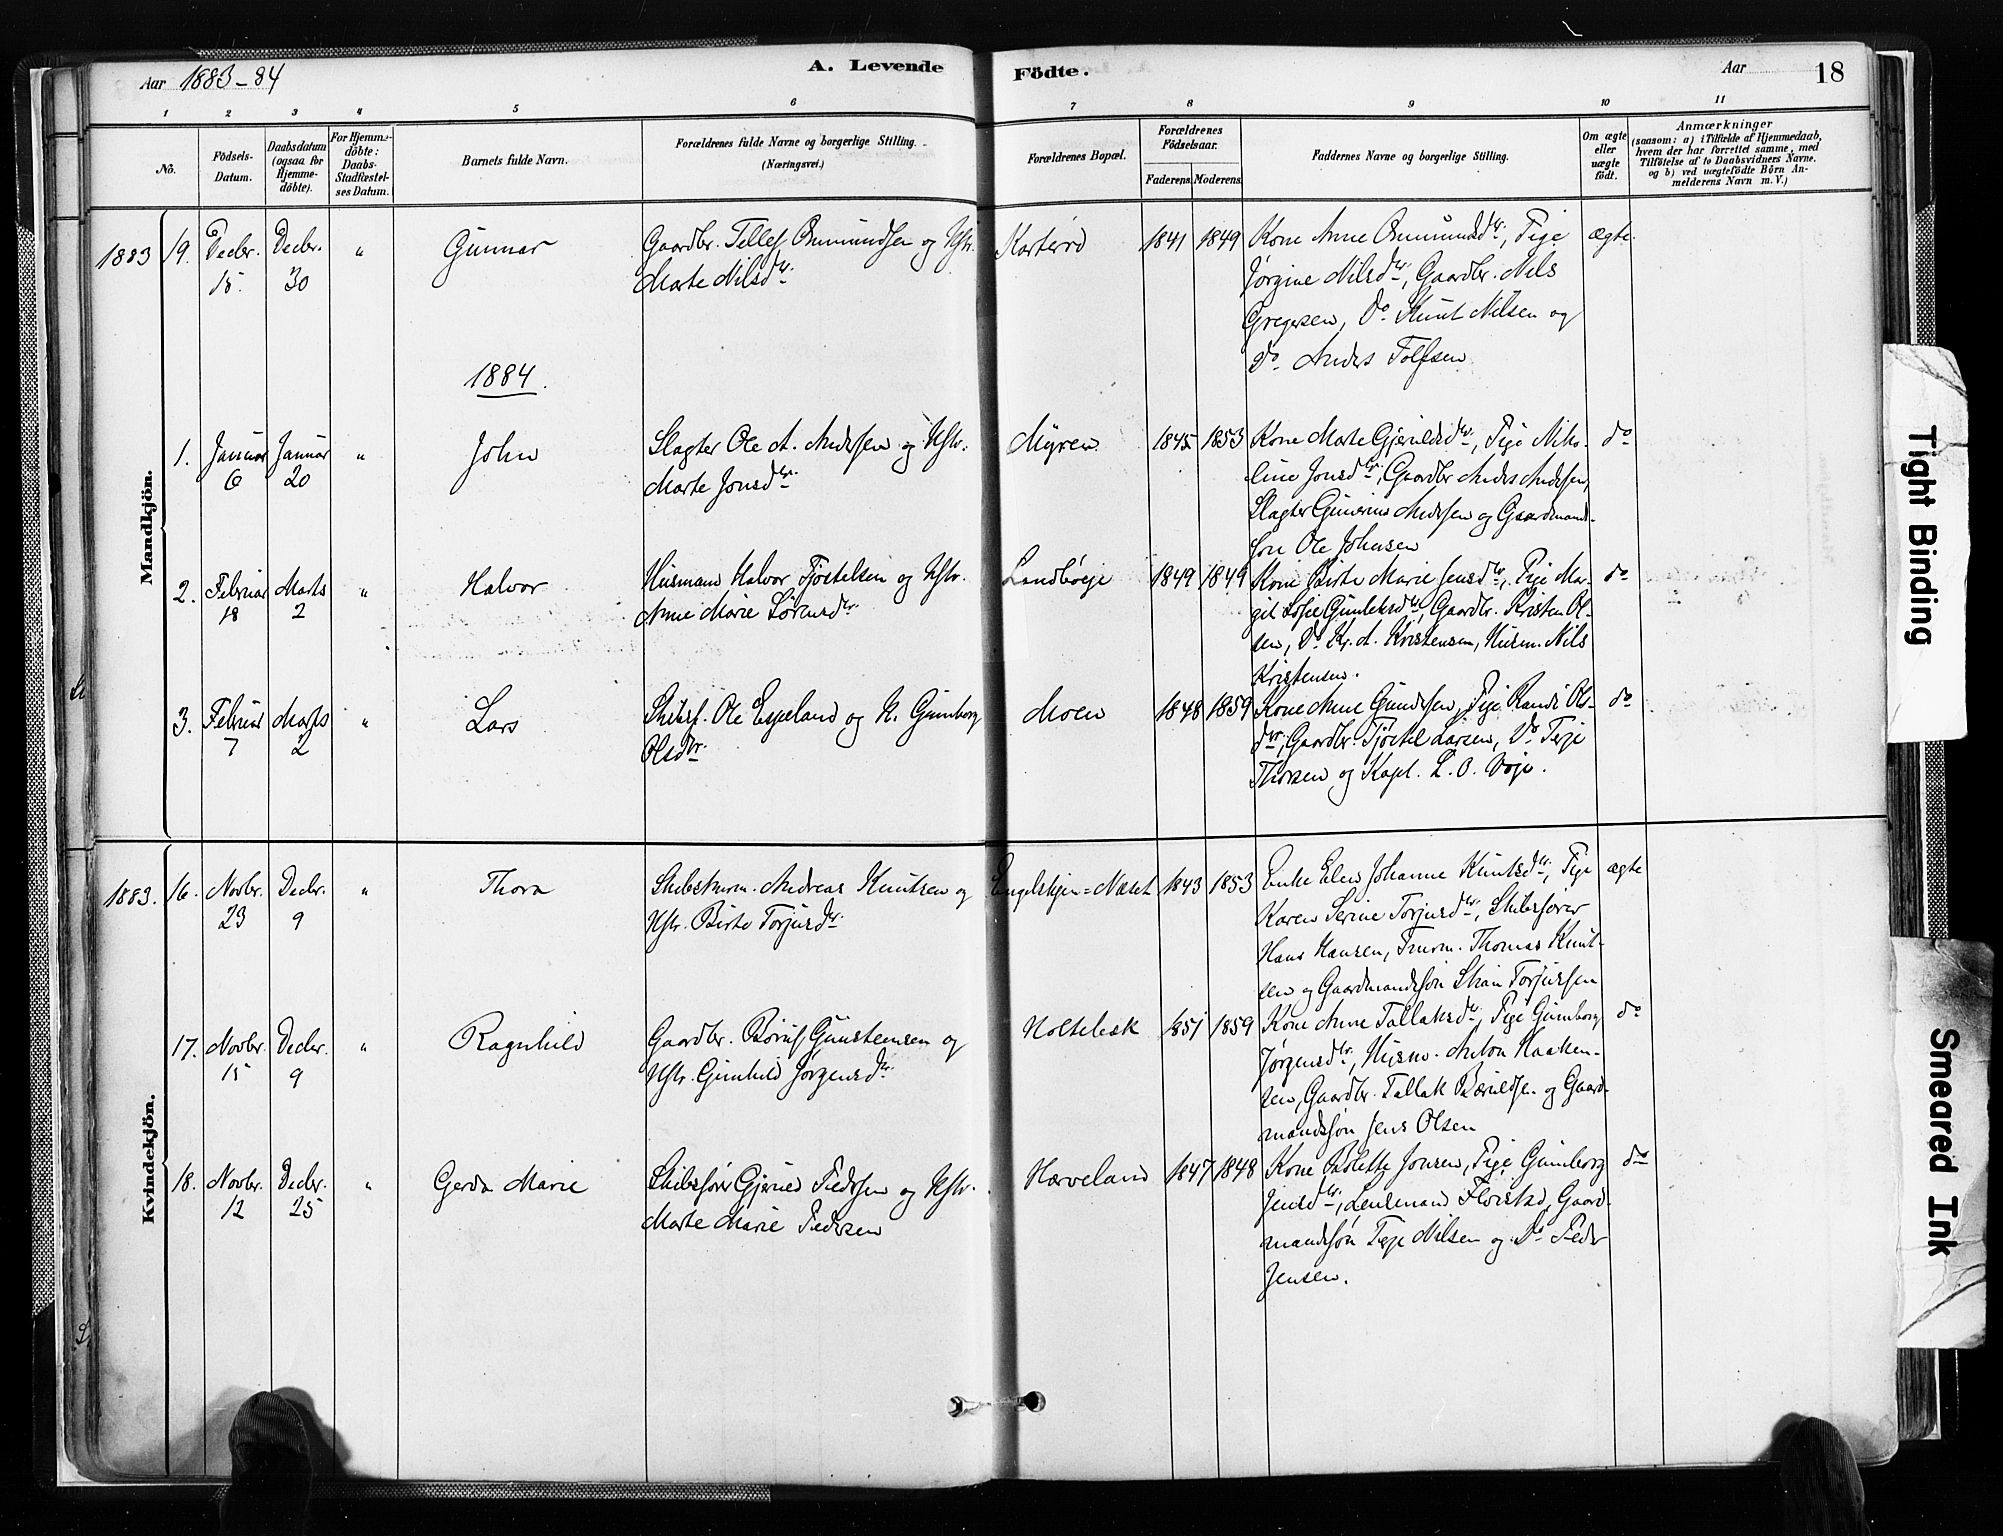 Aar 1883-84
A. Levende
Födte.
Aar
18
1
2
3
4
5
6
7
8
9
10
11
No.
Födsels-
Datum.
Daabsdatum
(ogsaa for
Hjemme-
döbte).
For Hjemme-
döbte:
Daabs-
Stadfæstel-
ses Datum.
Barnets fulde Navn.
Forældrenes fulde Navne og borgerlige Stilling.
(Næringsvei.)
Forældrenes Bopæl.
Forældrenes
Födselsaar.
Faderens.
Moderens.
Faddernes Navne og borgerlige Stilling.
Om ægte
eller
uægte
födt.
Anmærkninger
(saasom: a) i Tilfælde af Hjemmedaab,
hvem der har forrettet samme, med
Tilföielse af to Daabsvidners Navne.
og b) ved uægtefödte Börn An-
melderens Navn m. V.)
Mandkjön.
1883 19. Decbr. 15. Decbr. 30 "
Gunnar
Gaardbr. Tellef Ommundsen og Hstr.
Marte Nilsdtr.
Karterød
1841 1849
Kone Anne Ommundsdtr, Pige
Jørgine Nilsdtr, Gaardbr. Nils
Gregersen, Do Knut Nilsen og
do Anders Tolfsen
ægte.
1884.
1. Januar 6 Januar 20 "
John
Slagter Ole A. Andersen og Hstr.
Marte Jonsdtr.
Myren
1845 1853
Kone Marte Gjeruldsdtr, Pige Niko-
line Jonsdtr, Gaardbr Anders Andersen,
Slagter Gunerius Andersen og Gaardmands-
søn Ole Johnsen
do
2. Februar 18 Marts 2 "
Halvor
Husmann Halvor Tjøstelsen og Hstr.
Anne Marie Sørensdtr.
Landbøeje
1849 1849
Kone Birte Marie Jensdtr, Pige Mar-
git Sofie Gunleksdtr, Gaardbr. Kristen Ol-
sen, Do Kr. A. Kristensen, Husm. Nils
Kristensen.
do
3. Februar 7 Marts 2 "
Lars
Skibsf. Ole Espeland og H. Gunborg
Olsdtr.
Moen
1848 1859
Kone Anne Gundersen, Pige Randi Ols-
dtr, Gaardbr. Tjøstel Larsen, Do Terje
Thorsen og Kapt. L. O. Voje.
do
Kvindekjön.
1883. 16. Novbr. 23 Decbr. 9 "
Thora
Skibstmrm. Andreas Knutsen og
Hstr. Birte Torjusdtr.
Engelskjen=Næset
1843 1853
Enke Elen Johanne Knutsdtr, Pige
Karen Serine Torjusdtr, Skibsfører
Hans Hansen, Tmrm. Thomas Knut-
sen og Gaardmandssøn Stian Torjussen
ægte
17. Novbr. 15 Decbr. 9 "
Ragnhild
Gaardbr. Børuf Gunstensen og
Hstr. Gunhild Jørgensdtr.
Holtelesk
1851 1859
Kone Anne Tallaksdtr, Pige Gunborg
Jørgensdtr, Husm. Anton Haaken-
sen, Gaardbr. Tallak Børuldsen og Gaard-
mandssøn Jens Olsen
do
18. Novbr. 12 Decbr. 25 "
Gerda Marie
Skibsfører Gjerued Pedersen og Hstr.
Marte Marie Pedersen
Harveland
1847 1848
Kone Bolette Jonsen, Pige Gunborg
Jensdtr, Lensmand Fløistad, Gaard-
mandssøn Terje Nilsen og Do Peder
Jensen.
do
Tight Binding
Smeared Ink